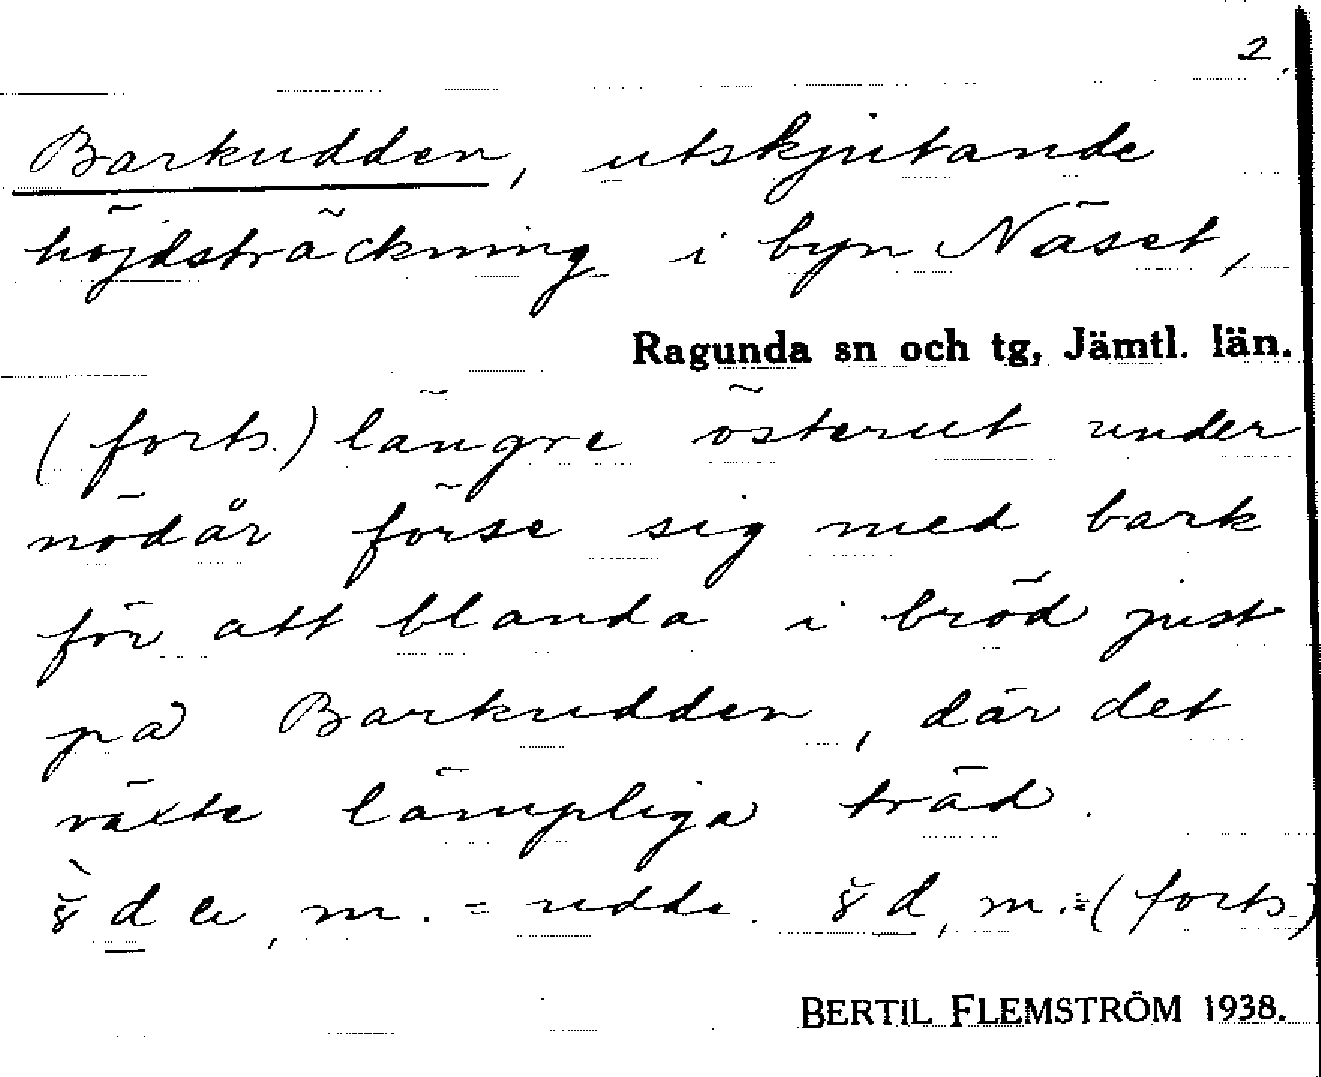 2.
Barkudden, utskjutande
höjdsträckning i byn Näset,
Ragunda sn och tg, Jämtl. län.
(forts.) längre österut under
nödår förse sig med bark
för att blanda i bröd just
på Barkudden, där det
växte lämpliga träd.
m. = udde. m. = (forts.)
BERTIL FLEMSTRÖM 1938.